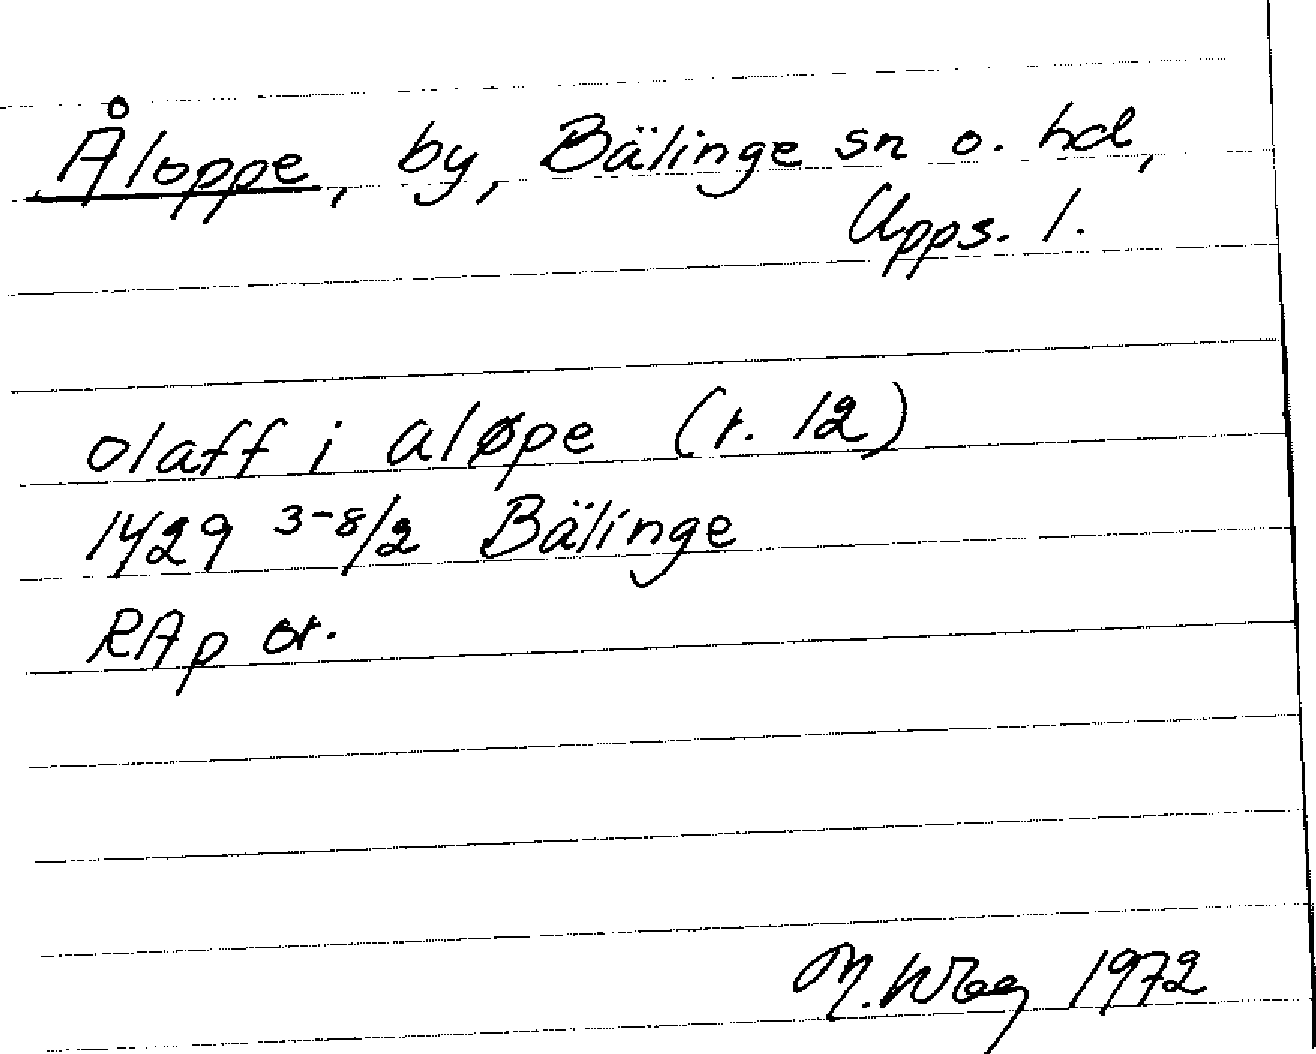 Åloppe, by, Bälinge sn o. hd,
Upps. l.
olaff i aløpe (r. 12)
1429 3-8/2 Bälinge
RAp or.
M. Wæg 1972